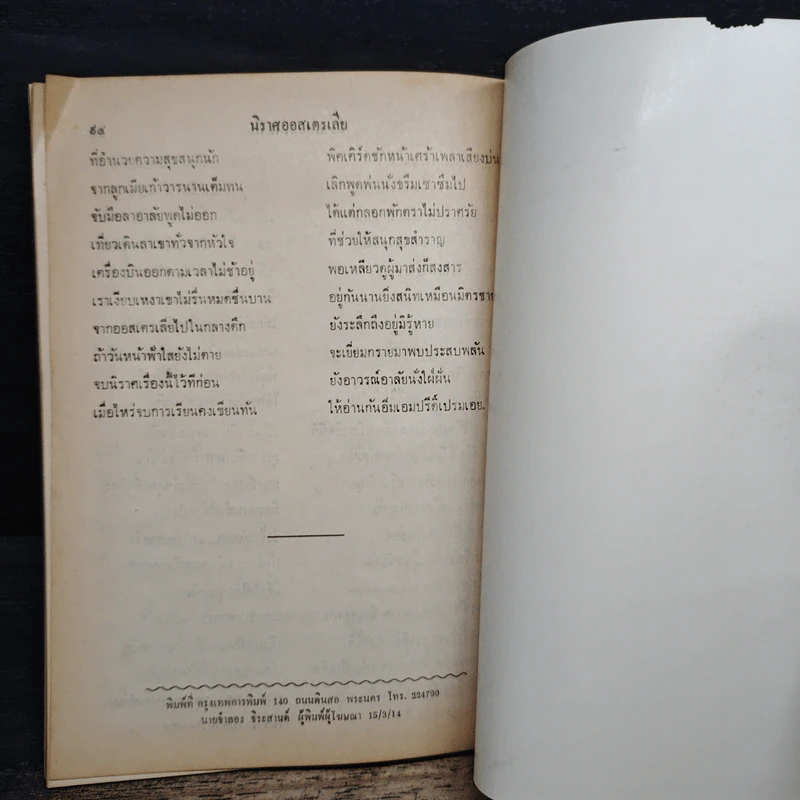 ๙๔ นิราศออสเตรเลีย
ที่อำนวยความสุขสนุกนัก พิศเคิร์ดชักหน้าเศร้าเพลาเสียงบ่น
จากลูกเมียเก้าวารนานเต็มทน เลิกพูดพ่นนั่งขรึมเซาซึมไป
จับมือลาอาลัยพูดไม่ออก ได้แต่กลอกพักตราไม่ปราศรัย
เที่ยวเดินลาเขาทั่วจากหัวใจ ที่ช่วยให้สนุกสุขสำราญ
เครื่องบินออกตามเวลาไม่ช้าอยู่ พอเหลียวดูผู้มาส่งก็สงสาร
เราเงียบเหงาเขาไม่รื่นหมดชื่นบาน อยู่กันนานยิ่งสนิทเหมือนมิตรชาย
จากออสเตรเลียไปในกลางดึก ยังระลึกถึงอยู่มิรู้หาย
ถ้าวันหน้าฟ้าใสยังไม่ตาย จะเยี่ยมกรายมาพบประสบพลัน
จบนิราศเรื่องนี้ไว้ทีก่อน ยังอาวรณ์อาลัยนั่งใฝ่ฝัน
เมื่อไหร่จบการเรียนคงเขียนทัน ให้อ่านกันอิ่มเอมปรีดิ์เปรมเอย.
พิมพ์ที่ กรุงเทพการพิมพ์ 140 ถนนดินสอ พระนคร โทร. 224790
นายจำลอง จิระสานต์ ผู้พิมพ์ผู้โฆษณา 15/3/14